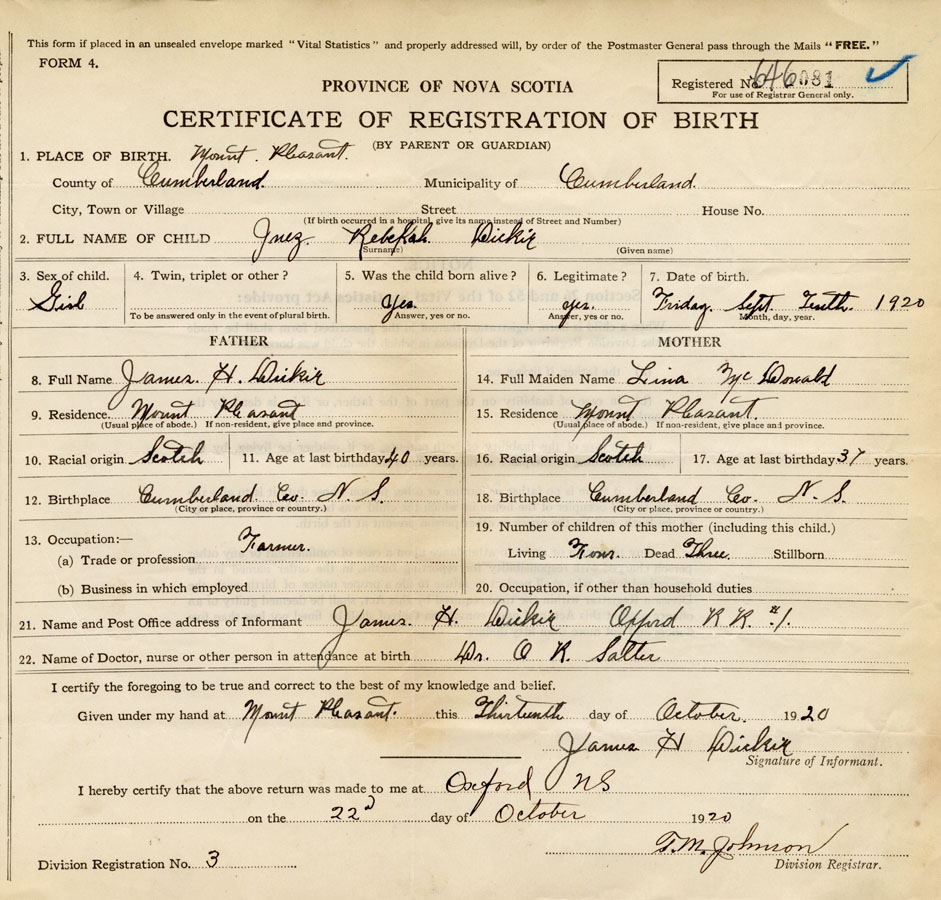 This form if placed in an unsealed envelope marked "Vital Statistics" and properly addressed will, by order of the Postmaster General pass through the Mails "FREE."
FORM 4.
Registered No. 646081
For use of Registrar General only.
PROVINCE OF NOVA SCOTIA
CERTIFICATE OF REGISTRATION OF BIRTH
(BY PARENT OR GUARDIAN)
1. PLACE OF BIRTH. Mount Pleasant.
County of Cumberland. Municipality of Cumberland.
City, Town or Village Street House No.
(If birth occurred in a hospital, give its name instead of Street and Number)
2. FULL NAME OF CHILD Inez. Rebekah. Dickie
(Surname) (Given name)
3. Sex of child. 4. Twin, triplet or other? 5. Was the child born alive? 6. Legitimate? 7. Date of birth.
Girl yes. yes. Friday. Sept. Tenth. 1920
To be answered only in the event of plural birth. Answer, yes or no. Answer, yes or no. Month, day, year.
FATHER MOTHER
8. Full Name James. H. Dickie 14. Full Maiden Name Lina McDonald
9. Residence. Mount Pleasant 15. Residence Mount Pleasant.
(Usual place of abode.) If non-resident, give place and province. (Usual place of abode.) If non-resident, give place and province.
10. Racial origin. Scotch 11. Age at last birthday 40 years. 16. Racial origin Scotch 17. Age at last birthday 37 years.
12. Birthplace Cumberland. Co. N. S. 18. Birthplace Cumberland Co. N. S.
(City or place, province or country.) (City or place, province or country.)
13. Occupation:— Farmer. 19. Number of children of this mother (including this child.)
(a) Trade or profession Living Four. Dead Three. Stillborn
(b) Business in which employed 20. Occupation, if other than household duties
21. Name and Post Office address of Informant James. H. Dickie Oxford R R #1.
22. Name of Doctor, nurse or other person in attendance at birth Dr. O R. Salter
I certify the foregoing to be true and correct to the best of my knowledge and belief.
Given under my hand at Mount Pleasant. this Thirteenth day of October. 1920
James H Dickie
Signature of Informant.
I hereby certify that the above return was made to me at Oxford NS
on the 22d day of October 1920
T. M. Johnson
Division Registration No. 3 Division Registrar.